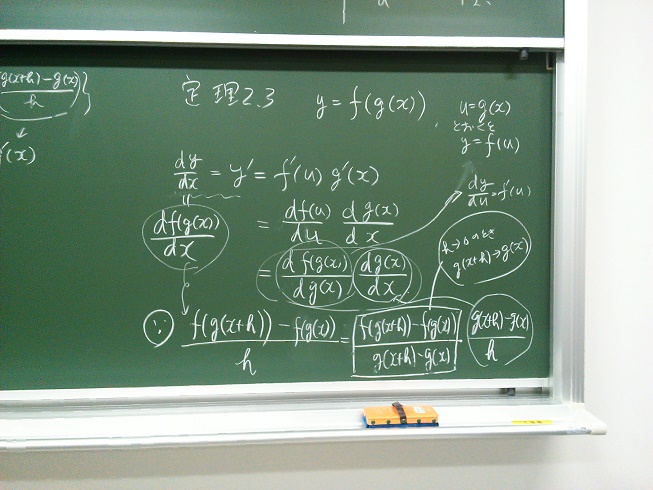 g(x+h) - g(x) }
h
'(x)
定理2.3 y = f(g(x))
u = g(x)
とおくと
y = f(u)
dy/dx = y' = f'(u) g'(x)
dy/du = f'(u)
df(g(x))/dx = df(u)/du dg(x)/dx
= df(g(x))/dg(x) dg(x)/dx
h→0のとき
g(x+h)→g(x)
∵ f(g(x+h)) - f(g(x))/h = f(g(x+h)) - f(g(x))/g(x+h) - g(x) · g(x+h) - g(x)/h